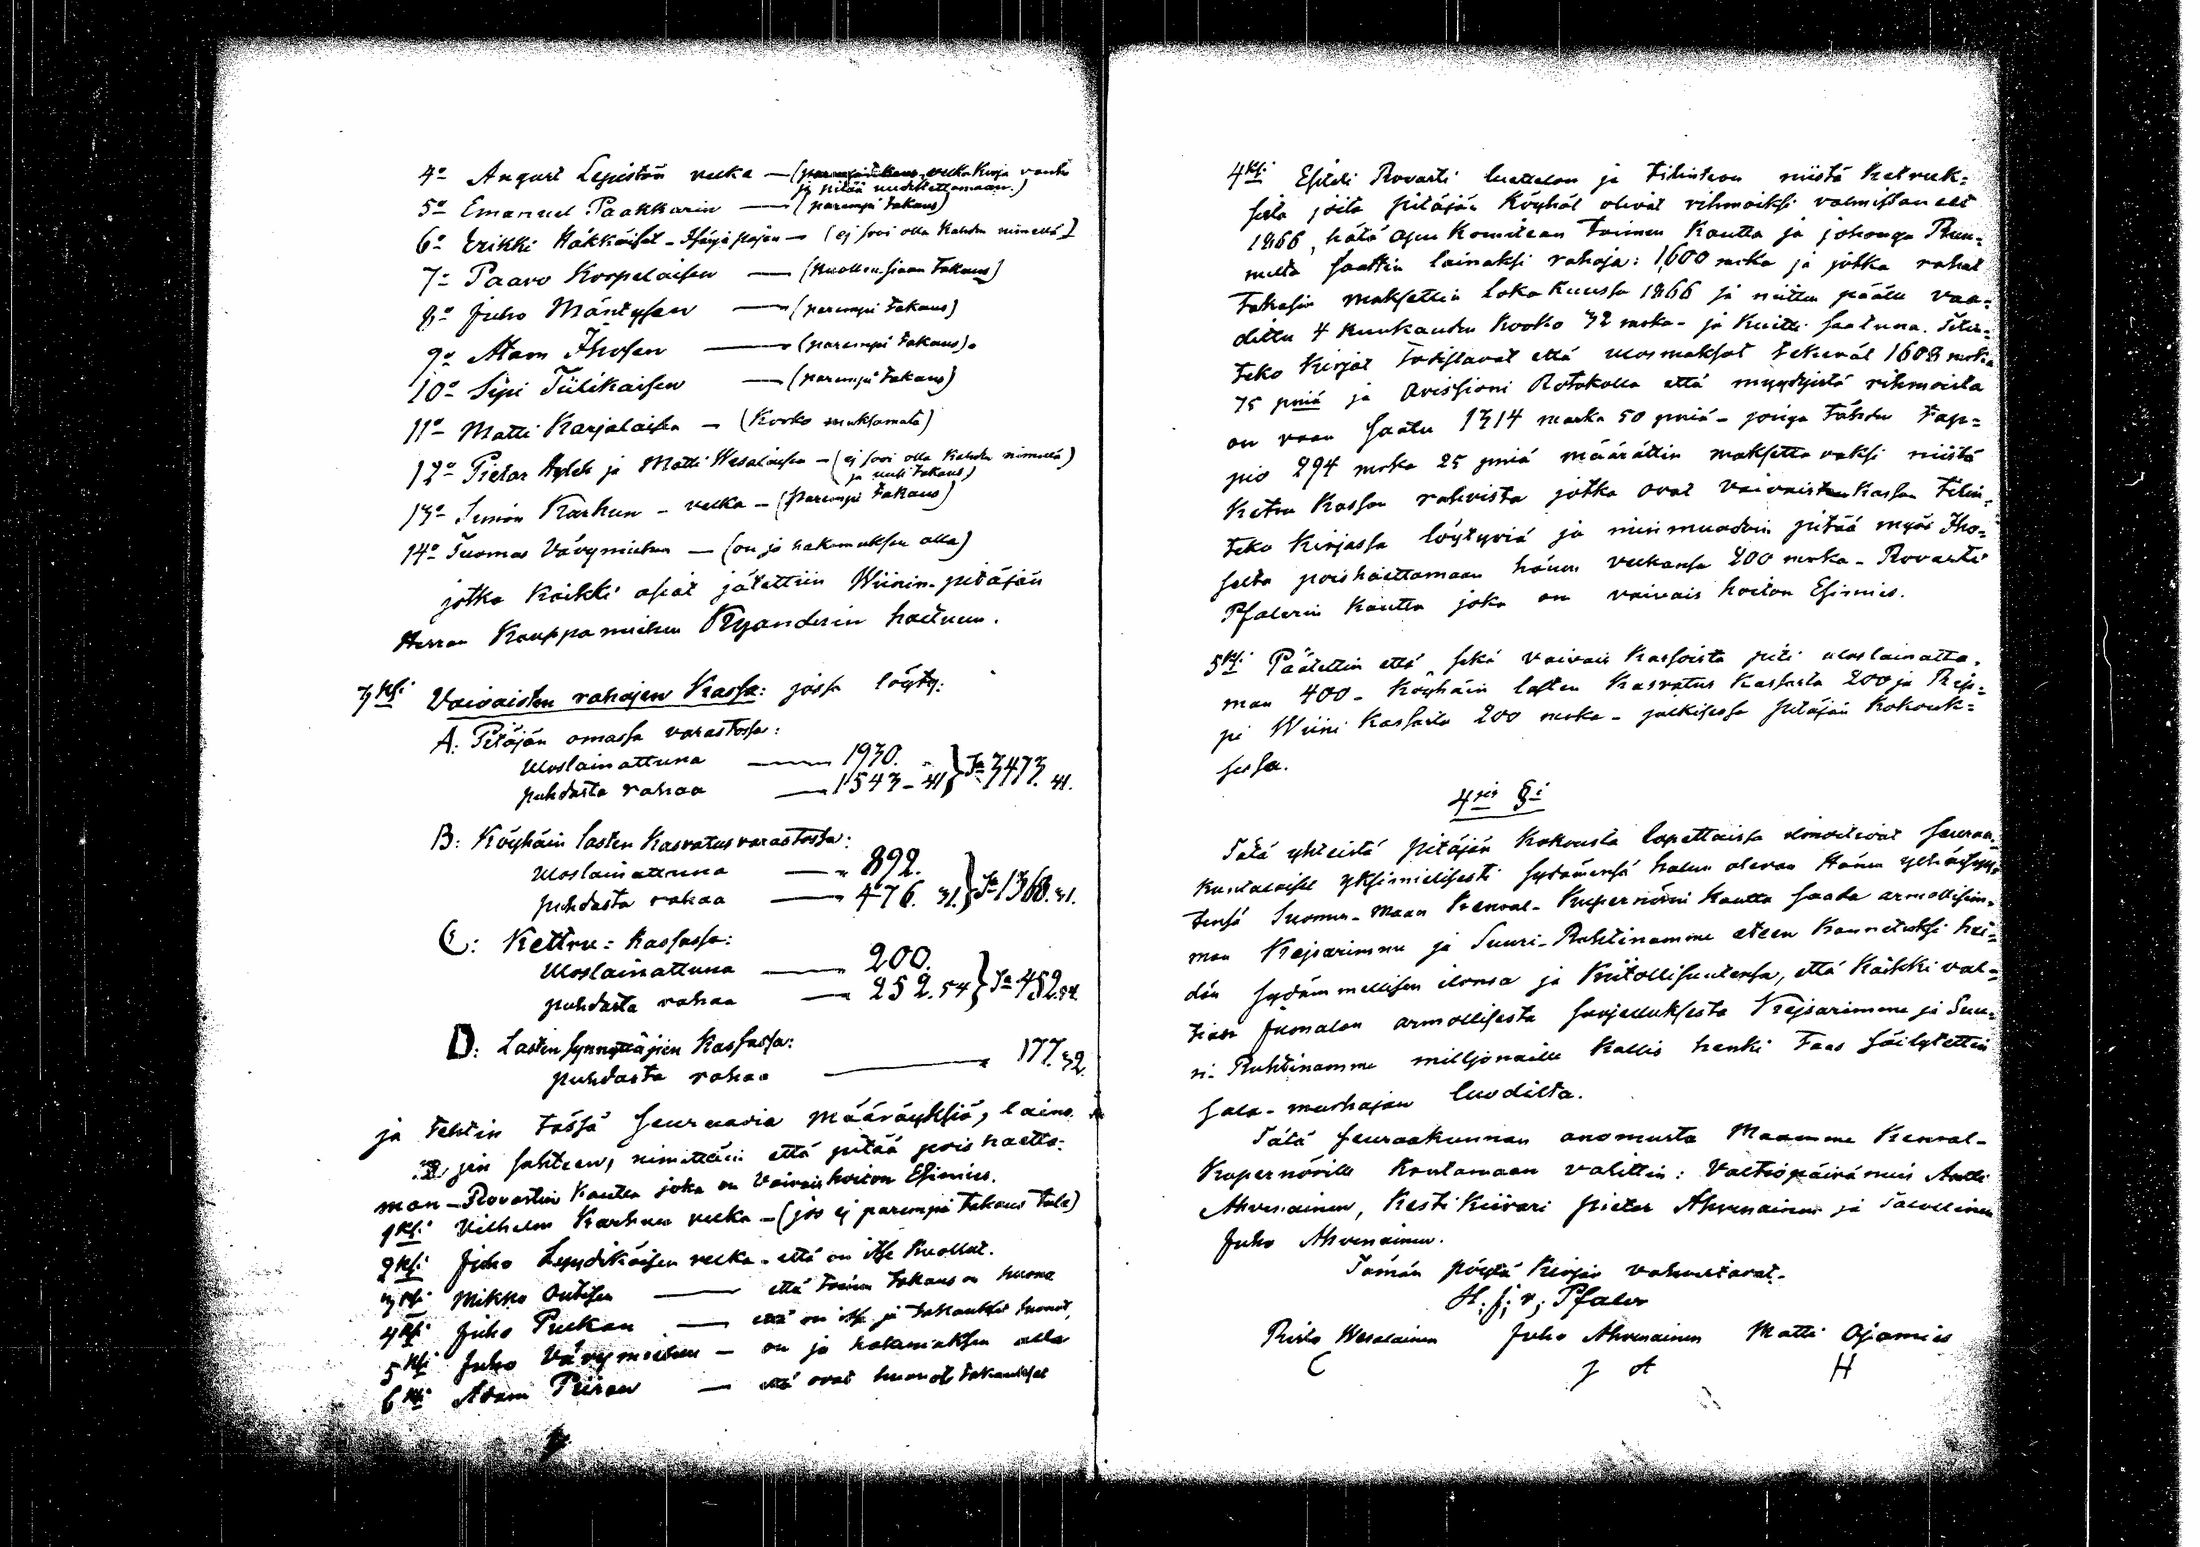 4o August Lepistön velka — (parempi takaus, velka kirja vanha
ja pitää uudistettamaan.)
5o Emanuel Paakkarin — (parempi takaus)
6o Erikki Häkkäiset - Ihärjä pajen — (ej sovi olla kahden nimellä)
7o Paavo Korpelaisen — (kuollen siaan takaus)
8o Juho Mäntysen — (parempi takaus)
9o Atam Ihosen — (parempi takaus).
10o Sipi Tiilikaisen — (parempi takaus)
11o Matti Karjalaisen — (Korko maksamata)
12o Pietar ja Matti Wesalaisen — (ej sovi olla kahden nimellä)
ja uusi takaus)
13o Simon Karhun - velka — (parempi takaus)
14o Tuomas Vävymiehen — (on jo hakemuksen alla)
jotka kaikki asiat jätettiin Wiinin-pitäjän
Herran Kauppamiehen Kyanderin haltuun.
3ksi Vaivaisten rahojen Kassa: jossa löyty:
A: Pitäjän omassa varastossa:
Uloslainattuna — 1930.
puhdasta rahaa — 1543 - 41 } Sa 3473. 41.
B: Köyhäin lasten Kasvatusvarastossa:
Uloslainattuna — 892.
puhdasta rahaa — 476. 31. } Sa 1368. 31.
C: Kettru = kassassa:
Uloslainattuna — 200.
puhdasta rahaa — 252. 54 } Sa 452. 54.
D: Lasten synnyttäjien Kassassa:
puhdasta rahaa — 177. 32.
ja tehtin tässä seuraavia määräyksiä, laino
jen suhteen, nimittäin että pitää pois haetta-
man — Rovastin kautta joka on Vaivaishoiton Esimies.
1ksi Vilhelm Karhun velka — (jos ej parempi takaus tule)
2ksi Juho Lyydikäisen velka - että on itse kuollut.
3ksi Mikko Outisen — että toinen takaus on huono
4ksi Juho Pulkan — että on itse ja takaukset huonot,
5ksi Juho Vävymiehen — on jo hakemuksen alla
6ksi Atam Piiran — että ovat huonot takaukset
4ksi Esitti Rovasti luettelon ja tilinteon niistä ketruk-
sista joita pitäjän Köyhät olivat rihmoiksi valmistaneet
1866, hätä apu Komitean toimen kautta ja johonga Kruu-
nulta saattin lainaksi rahoja: 1,600 mrka ja jotka rahat
takasin maksettin Lokakuussa 1866 ja niitten päälle vaa-
dittu 4 kuukauden korko 32 mrka - ja kuitti saatuna. Tilin-
teko kirjat todistavat että ulosmaksot tekevät 1608 mrka
75 pniä ja Avissioni Rotokolla että myydyistä rihmoista
on vaan saatu 1314 marka 50 pniä - jonga tähden tap-
pio 294 mrka 25 pniä määrättin maksettavaksi niistä
Ketru Kassan rahoista jotka ovat vaivaisten kassan tilin-
teko kirjassa löytyviä ja niinmuodoin pitää myös Iho-
selta poishaettamaan hänen velkansa 200 mrka - Rovasti
Pfalerin kautta joka on vaivais hoiton Esimies.
5ksi Päätettin että sekä Vaivais Kassoista piti uloslainatta-
man 400 - Köyhäin lasten Kasvatus Kassasta 200 ja Rip-
pi Wiini Kassasta 200 mrka - julkisessa pitäjän Kokouk-
sessa.
4jäs §i
Tätä yhteistä pitäjän Kokousta lopettaissa ilmoitivat seuraa-
kuntalaiset yksimielisesti sydämensä halun olevan Hänen ylhäisyy-
tensä Suomen-Maan Kenral-Kupernörin kautta saada armollisim-
man Kejsarimme ja Suuri-Ruhtinamme eteen kannetuksi hei-
dän sydämmellisen ilonsa ja kiitollisuutensa, että kaikki val-
tiaan Jumalan armollisesta suojelluksesta Kejsarimme ja Suu-
ri-Ruhtinamme milljonaille kallis henki taas säilytettin
sala-murhajan luodilta.
Tätä seuraakunnan anomusta Maamme Kenral-
Kupernörille kantamaan valittin: Valtiopäivämies Antti
Ahvenainen, Kesti Kiivari Pietar Ahvenainen ja Talollinen
Juho Ahvenainen.
Tämän pöytä kirjan vahvistavat-
H. J. v. Pfaler
Risto Wesalainen Juho Ahvenainen Matti Ojamies
C J A H